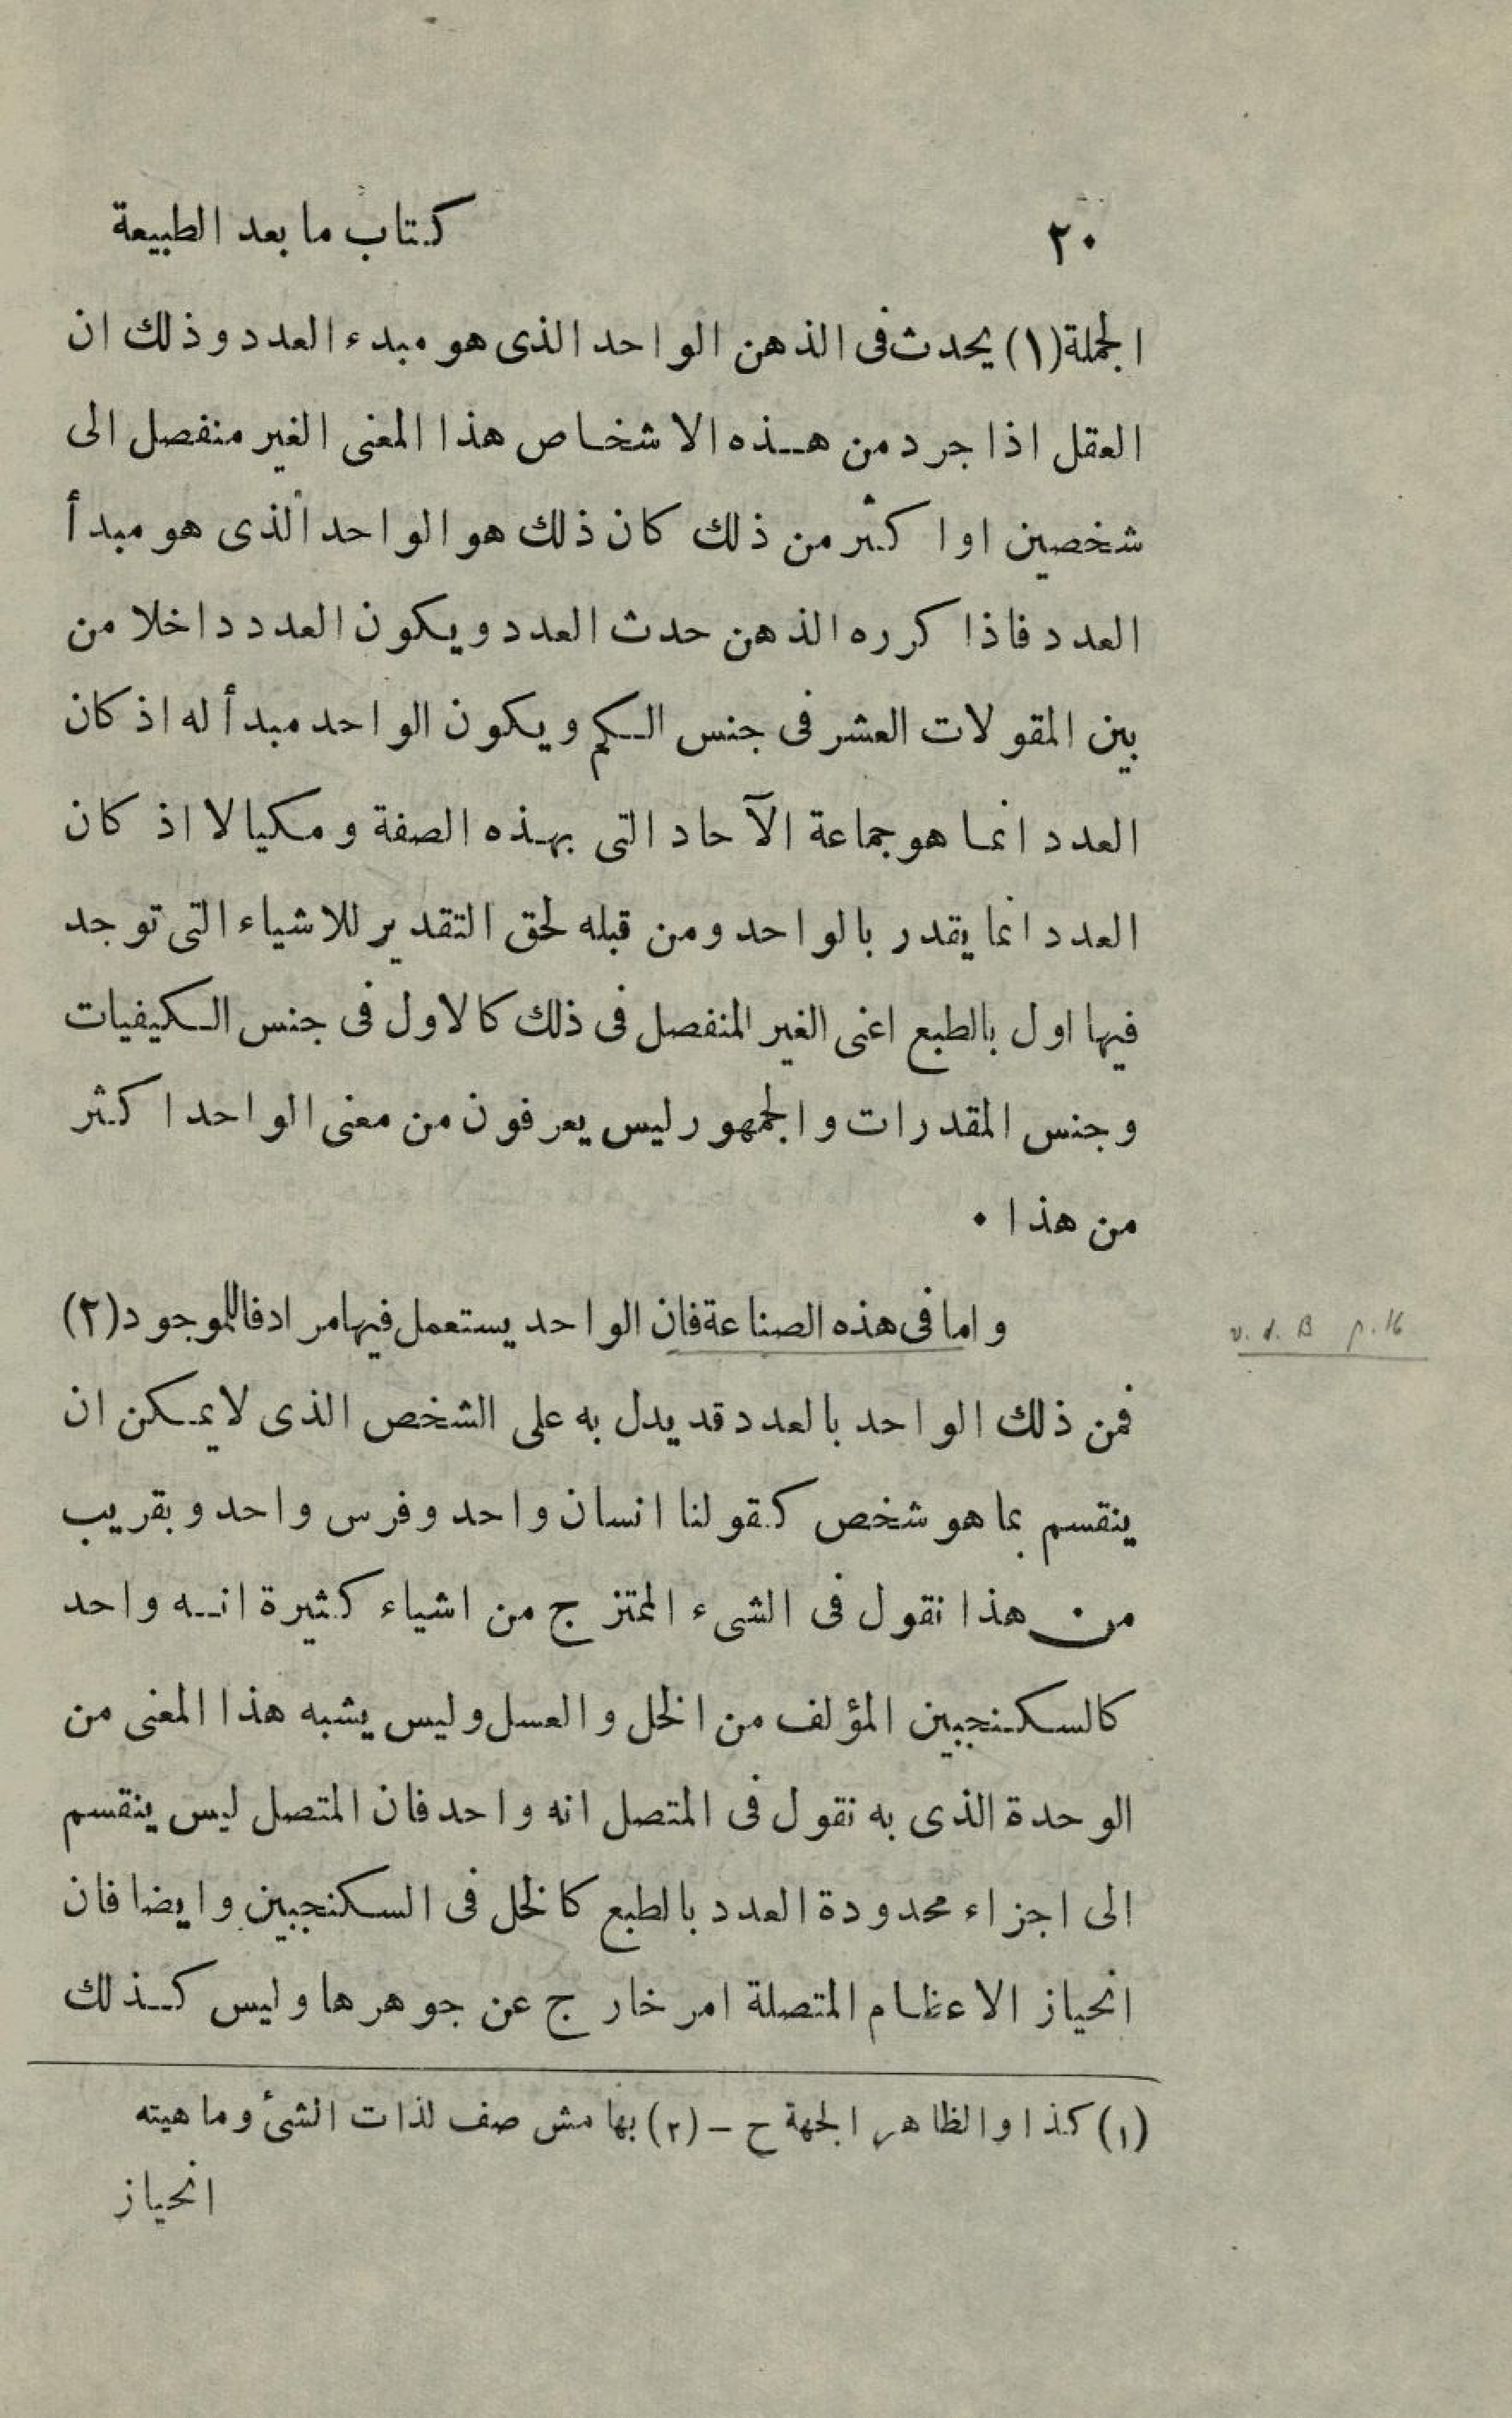 ٢٠ كتاب ما بعد الطبيعة
الجملة (١) يحدث فى الذهن الواحد الذى هو مبدء العدد وذلك ان
العقل اذا جرد من هذه الاشخاص هذا المعنى الغير منفصل الى
شخصين او اكثر من ذلك كان ذلك هو الواحد الذى هو مبدأ
العدد فاذا كرره الذهن حدث العدد ويكون العدد داخلا من
بين المقولات العشر فى جنس الكم ويكون الواحد مبدأ له اذ كان
العدد انما هو جماعة الآحاد التى بهذه الصفة ومكيالا اذ كان
العدد انما يقدر بالواحد ومن قبله لحق التقدير للاشياء التى توجد
فيها اول بالطبع اعنى الغير المنفصل فى ذلك كالاول فى جنس الكيفيات
وجنس المقدرات والجمهور ليس يعرفون من معنى الواحد اكثر
من هذا ٠
واما فى هذه الصناعة فان الواحد يستعمل فيها مرادفا للموجود (٢)
v. d. B p. 16
فمن ذلك الواحد بالعدد قد يدل به على الشخص الذى لا يمكن ان
ينقسم بما هو شخص كقولنا انسان واحد وفرس واحد وبقريب
من هذا نقول فى الشىء الممتزج من اشياء كثيرة انه واحد
كالسكنجبين المؤلف من الخل والعسل وليس يشبه هذا المعنى من
الوحدة الذى به نقول فى المتصل انه واحد فان المتصل ليس ينقسم
الى اجزاء محدودة العدد بالطبع كالخل فى السكنجبين وايضا فان
انحياز الاعظام المتصلة امر خارج عن جوهرها وليس كذلك
(١) كذا والظاهر الجهة ح – (٢) بهامش صف لذات الشئ وماهيته
انحياز